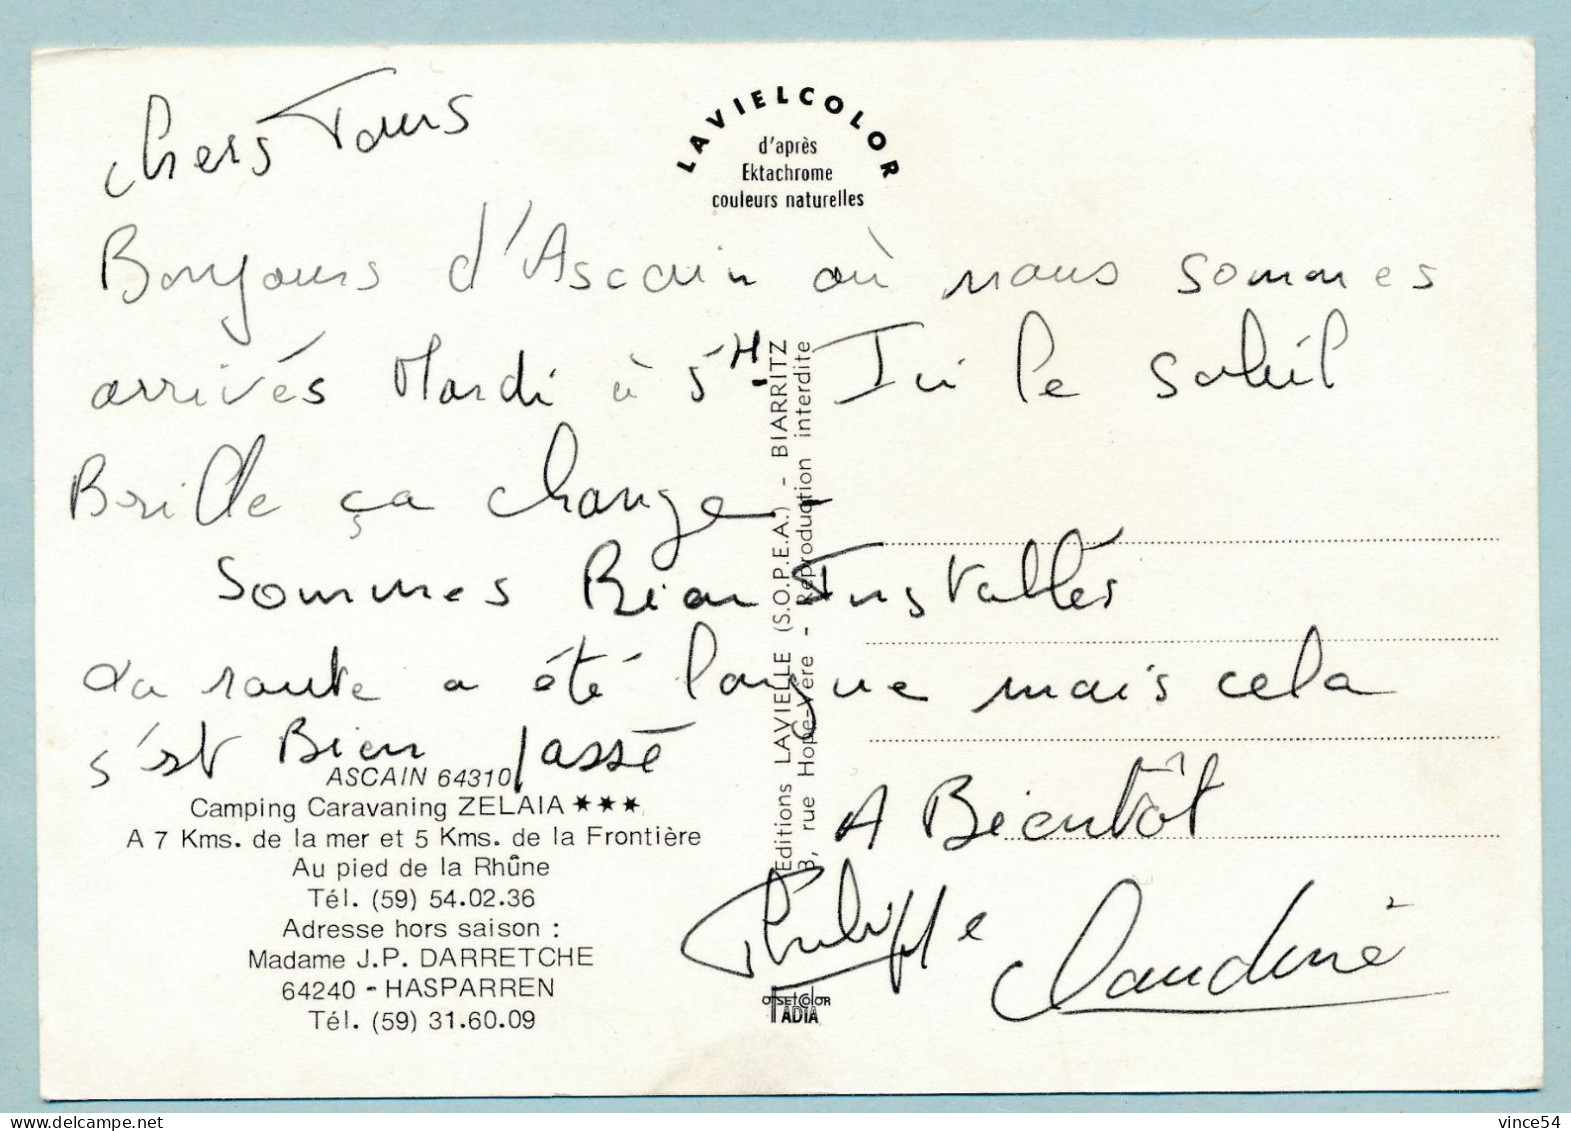 Chers Tous
LAVIELCOLOR
d'après
Ektachrome
couleurs naturelles
Bonjours d'Ascain où nous sommes
arrivés Mardi à 5H. Ici le soleil
Brille ça change -
sommes Bien Installés
La route a été longue mais cela
s'est Bien passé
A Bientôt
Philippe Claudine
ASCAIN 64310
Camping Caravaning ZELAIA ★★★
A 7 Kms. de la mer et 5 Kms. de la Frontière
Au pied de la Rhûne
Tél. (59) 54.02.36
Adresse hors saison :
Madame J.P. DARRETCHE
64240 - HASPARREN
Tél. (59) 31.60.09
Editions LAVIELLE (S.O.P.E.A.) - BIARRITZ
8, rue Hope-Vere - Reproduction interdite
OFFSET COLOR
ADIA
delcampe.net
vince54